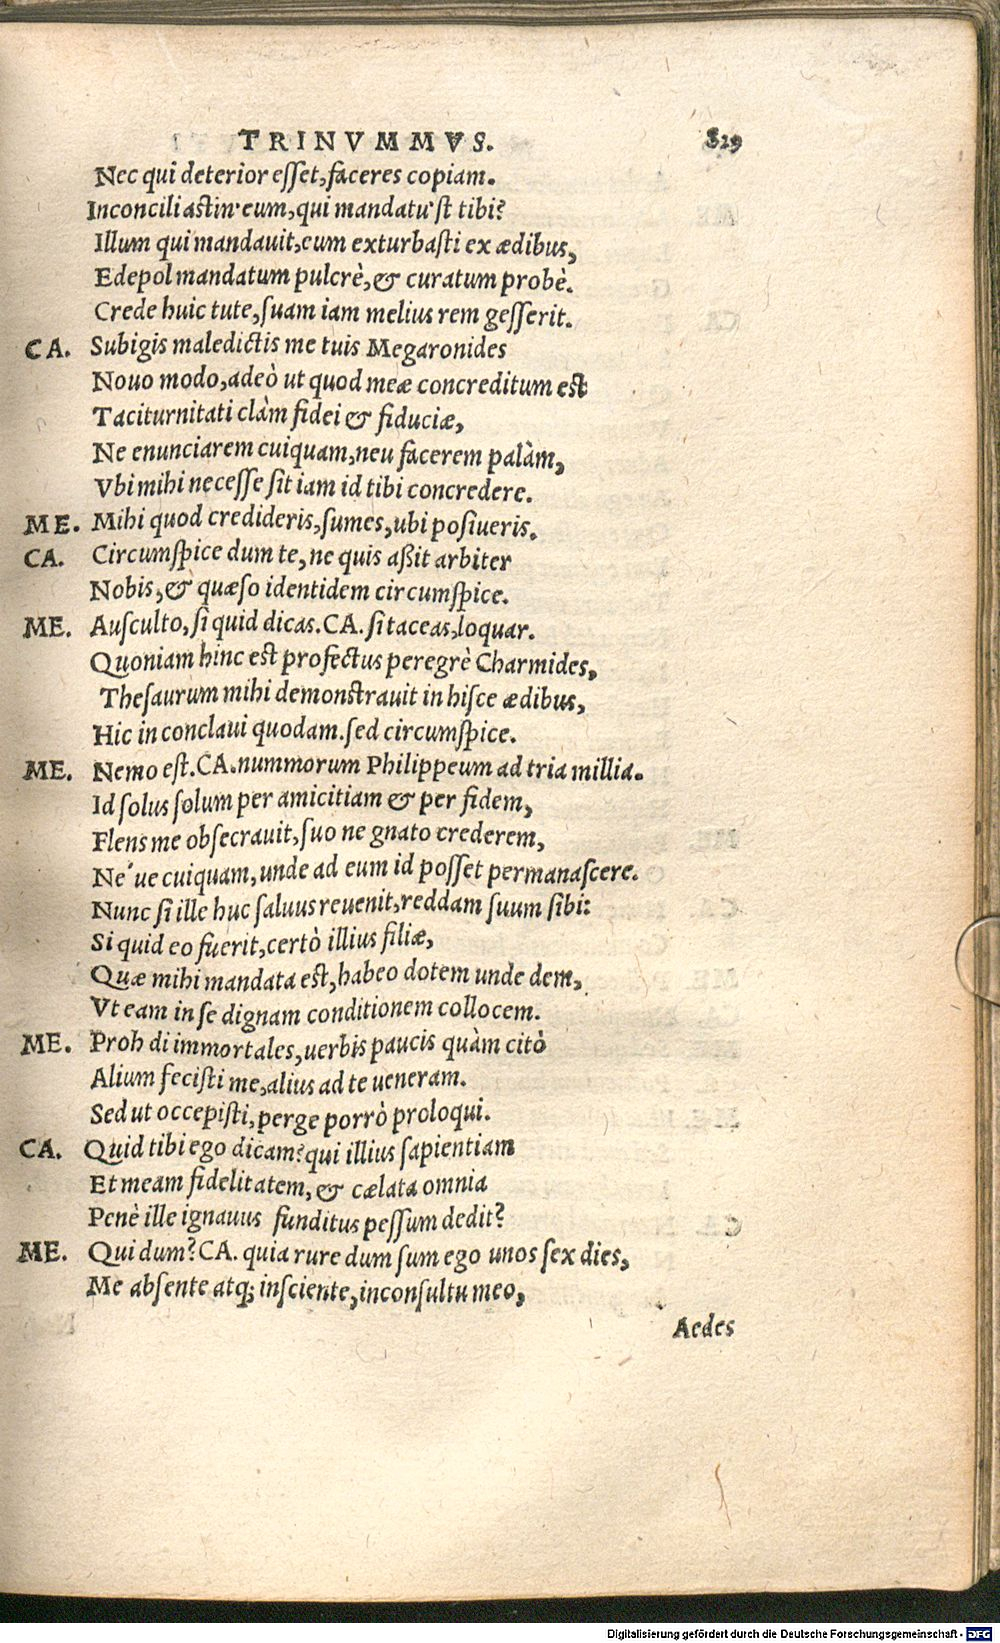 TRINVMMVS. 829
Nec qui deterior esset, faceres copiam.
Inconciliastin' eum, qui mandatu'st tibi?
Illum qui mandauit, eum exturbasti ex ædibus,
Edepol mandatum pulcrè, & curatum probè.
Crede huic tute, suam iam melius rem gesserit.
CA. Subigis maledictis me tuis Megaronides
Nouo modo, adeò ut quod meæ concreditum est
Taciturnitati clàm fidei & fiduciæ,
Ne enunciarem cuiquam, neu facerem palàm,
Vbi mihi necesse sit iam id tibi concredere.
ME. Mihi quod credideris, sumes, ubi posiueris.
CA. Circumspice dum te, ne quis aßit arbiter
Nobis, & quæso identidem circumspice.
ME. Ausculto, si quid dicas. CA. si taceas, loquar.
Quoniam hinc est profectus peregrè Charmides,
Thesaurum mihi demonstrauit in hisce ædibus,
Hic in conclaui quodam. sed circumspice.
ME. Nemo est. CA. nummorum Philippeum ad tria millia.
Id solus solum per amicitiam & per fidem,
Flens me obsecrauit, suo ne gnato crederem,
Ne'ue cuiquam, unde ad eum id posset permanascere.
Nunc si ille huc saluus reuenit, reddam suum sibi:
Si quid eo fuerit, certò illius filiæ,
Quæ mihi mandata est, habeo dotem unde dem,
Vt eam in se dignam conditionem collocem.
ME. Proh di immortales, uerbis paucis quàm citò
Alium fecisti me, alius ad te ueneram.
Sed ut occepisti, perge porrò proloqui.
CA. Quid tibi ego dicam? qui illius sapientiam
Et meam fidelitatem, & cælata omnia
Penè ille ignauus funditus pessum dedit?
ME. Qui dum? CA. quia rure dum sum ego unos sex dies,
Me absente atq; insciente, inconsultu meo,
Aedes
Digitalisierung gefördert durch die Deutsche Forschungsgemeinschaft - DFG